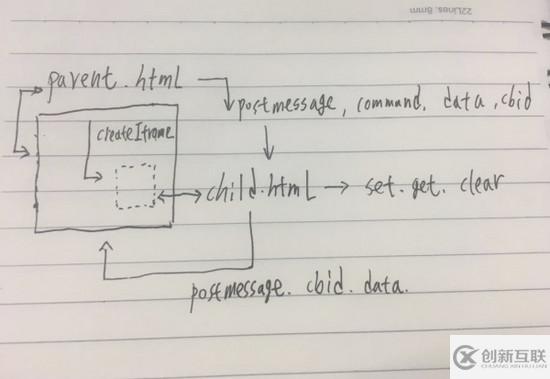 22Lines. 8mm
parent.html
postmessage, command, data, cbid
createIframe
child.html → set.get.clear
postmessage. cbid. data.
创新互联
CHUANG XIN HU LIAN